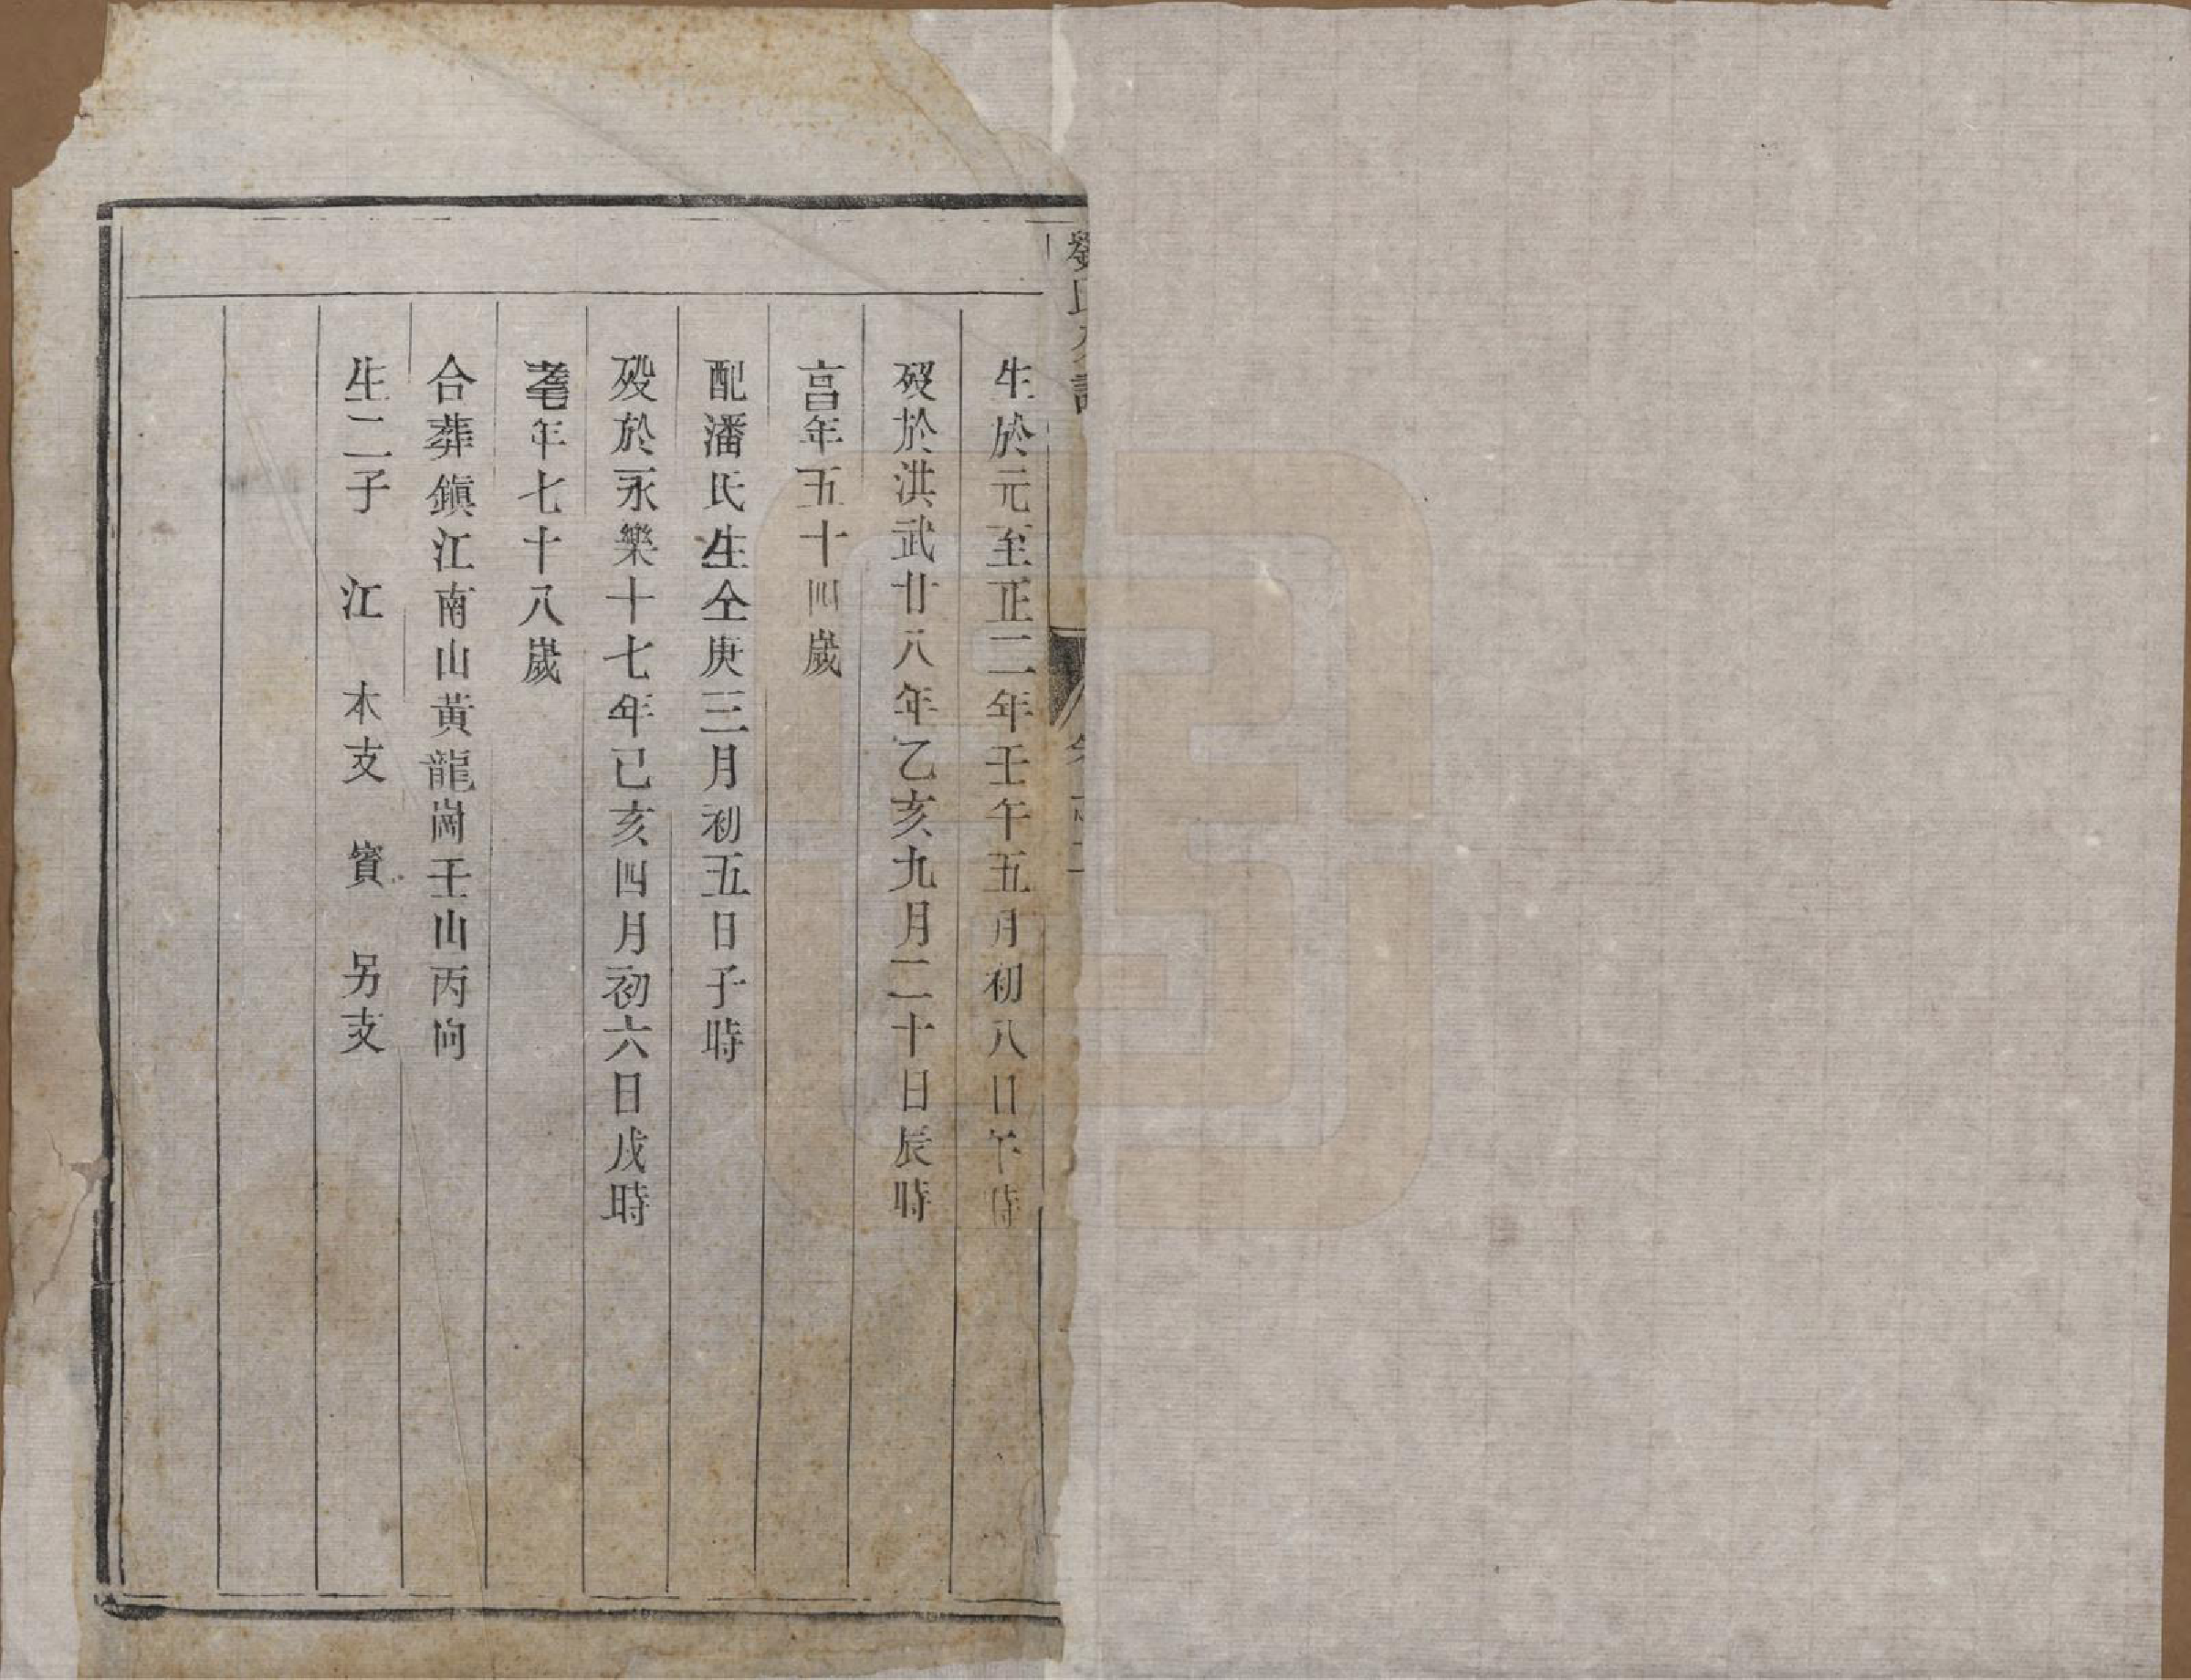 劉氏
生於元至正二年壬午五月初八日午時
歿於洪武廿八年乙亥九月二十日辰時
亯年五十四歲
配潘氏生仝庚三月初五日子時
歿於永樂十七年己亥四月初六日戌時
耄年七十八歲
合葬鎭江南山黃龍崗壬山丙向
生二子 江 木支 賓 另支